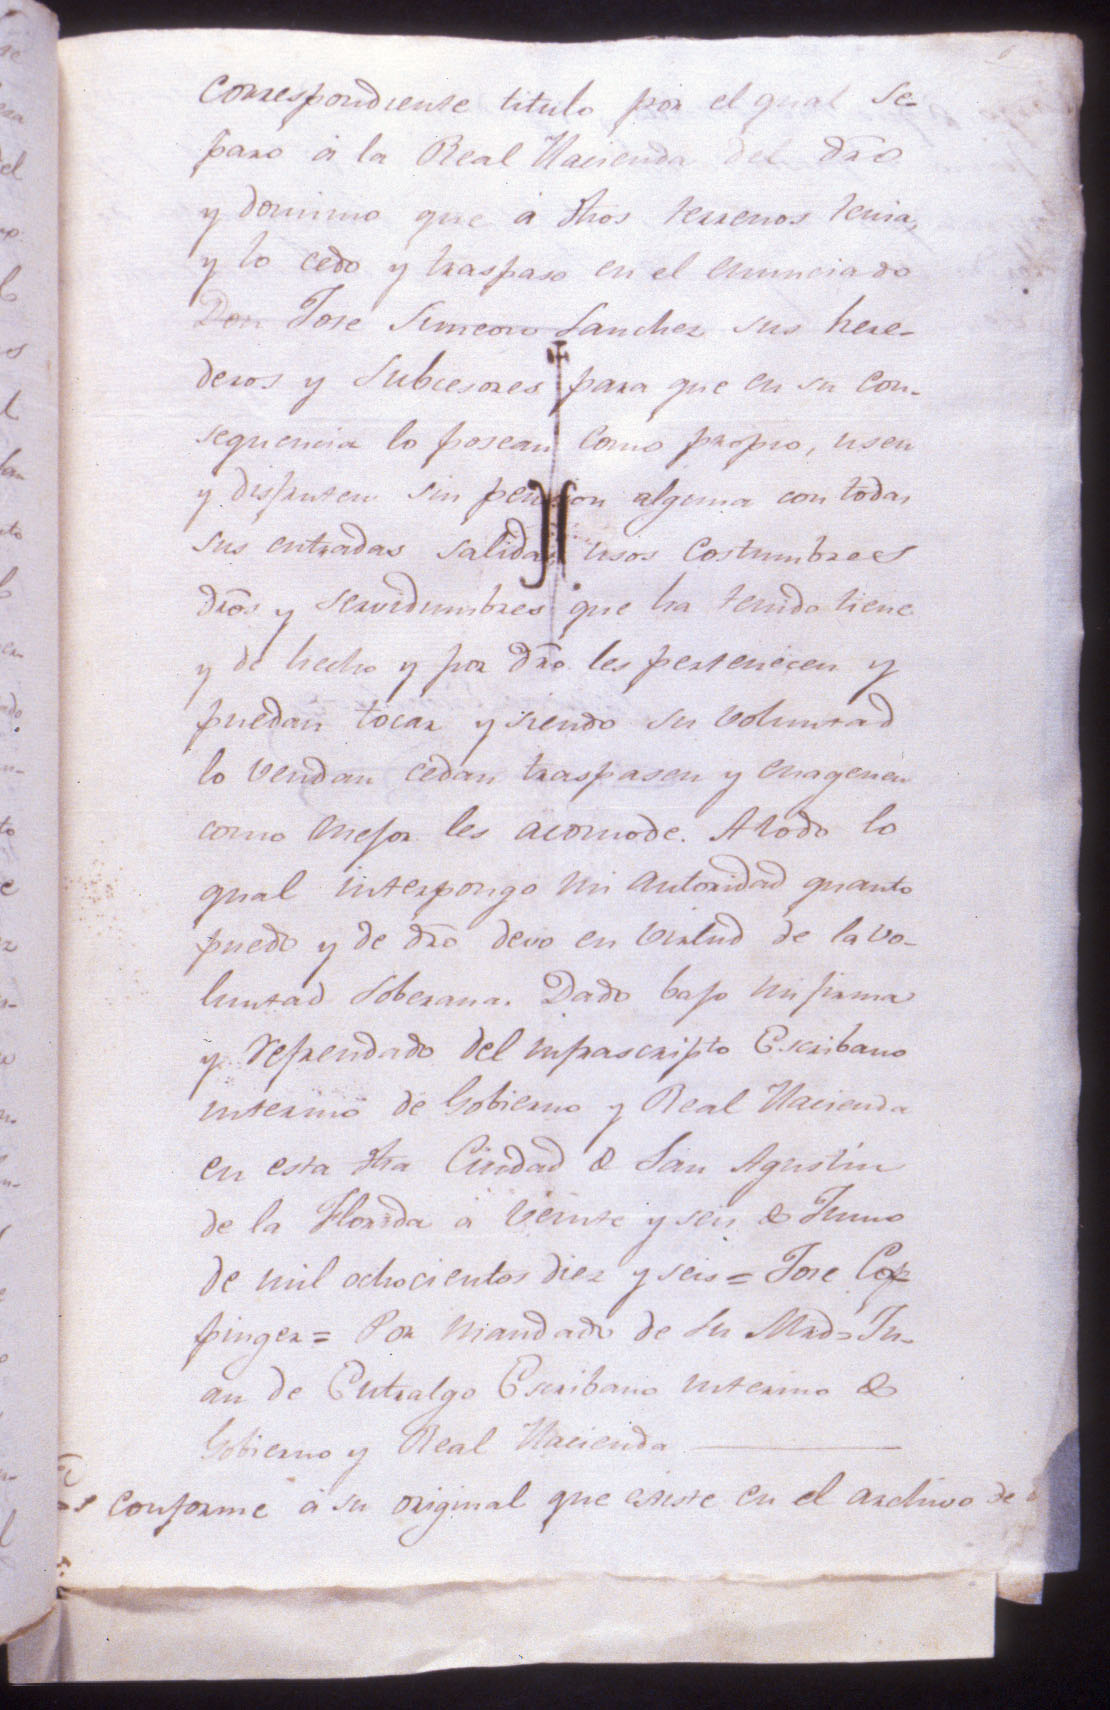 correspondiente titulo por el qual se-
paro á la Real Hacienda del dro
y dominio que á dhos terrenos tenia,
y lo cedo y traspaso en el enunciado
Don Jose Simeon Sanchez sus here-
deros y Subcesores para que en su con-
sequencia lo posean como propio, usen
y disfruten sin pension alguna con todas
sus entradas salidas usos costumbres
dros y servidumbres que ha tenido tiene
y de hecho y por dro les pertenecen y
puedan tocar y siendo su voluntad
lo vendan cedan traspasen y enagenen
como mejor les acomode. A todo lo
qual interpongo mi autoridad quanto
puedo y de dro devo en virtud de la vo-
luntad Soberana. Dado bajo mi firma
y refrendado del infrascripto Escribano
interino de Gobierno y Real Hacienda
en esta dha Ciudad de San Agustin
de la Florida á veinte y seis de Junio
de mil ochocientos diez y seis = Jose Cop-
pinger = Por mandado de su Mrd = Ju-
an de Entralgo Escribano interino de
Gobierno y Real Hacienda
Es conforme á su original que existe en el archivo de